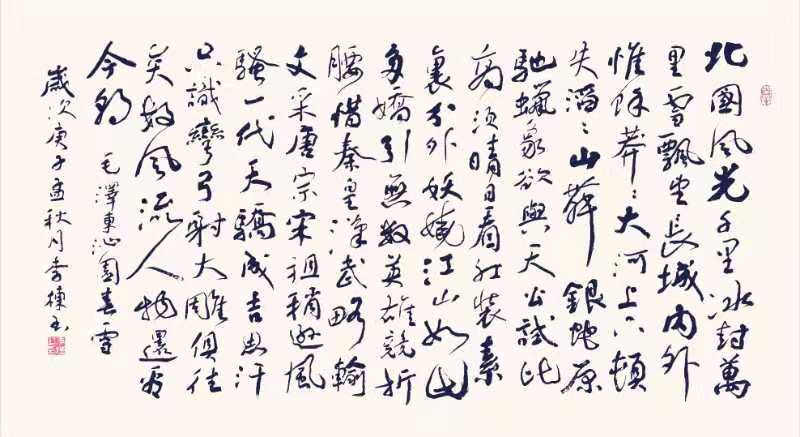 北國風光千里冰封萬
里雪飄望長城內外
惟餘莽〻大河上下頓
失滔〻山舞銀蛇原
馳蠟象欲與天公試比
高須晴日看紅裝素
裹分外妖嬈江山如此
多嬌引無數英雄競折
腰惜秦皇漢武略輸
文采唐宗宋祖稍遜風
騷一代天驕成吉思汗
只識彎弓射大雕俱往
矣數風流人物還看
今朝
毛澤東沁園春雪
歲次庚子孟秋月李棟書